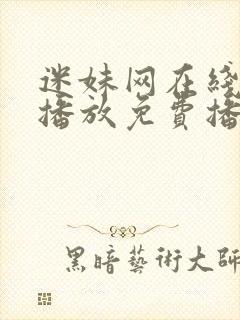 迷妹网在綫
播放免費播
黑暗藝術大師